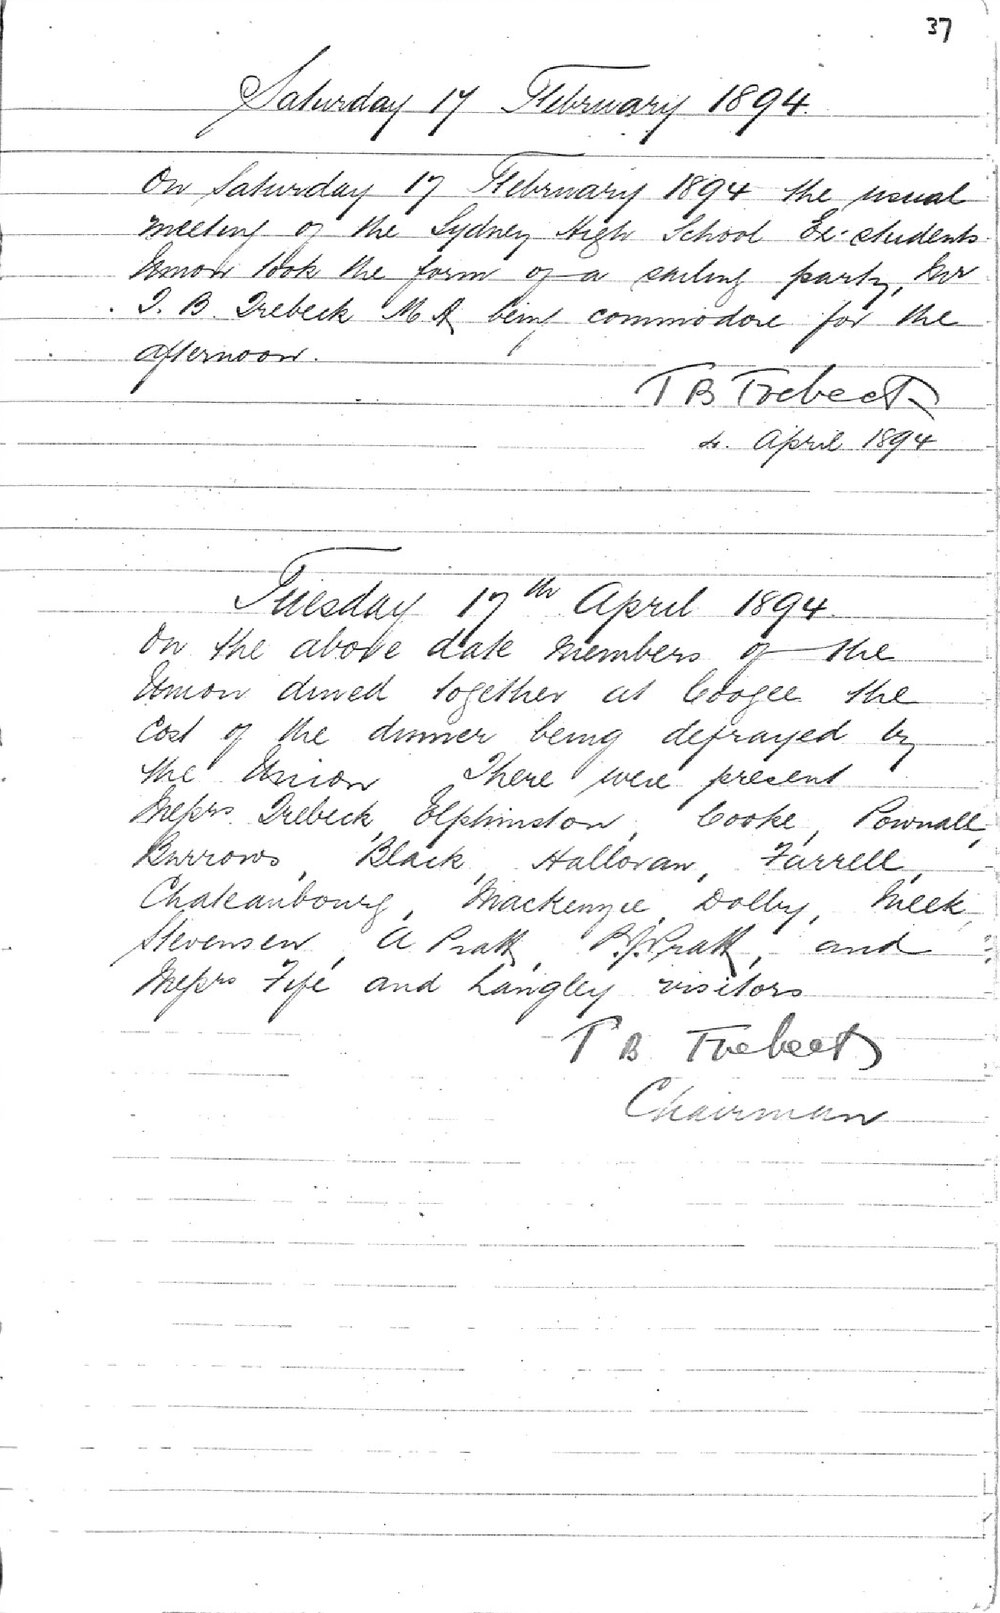 37
Saturday 17 February 1894.
On Saturday 17 February 1894 the usual
meeting of the Sydney High School Ex-students
Union took the form of a sailing party, Mr
T. B. Trebeck M A being commodore for the
afternoon.
T B Trebeck
4. April 1894
Tuesday 17th April 1894.
On the above date members of the
Union dined together at Coogee the
cost of the dinner being defrayed by
the Union There were present
Messrs Trebeck, Elphinston, Cooke, Pownall,
Burrows, Black, Halloran, Farrell,
Chateaubourg, Mackenzie, Dolby, Meek,
Stevensen, A Pratt, Pratt, and
Messrs Fife and Langley visitors
T B Trebeck
Chairman